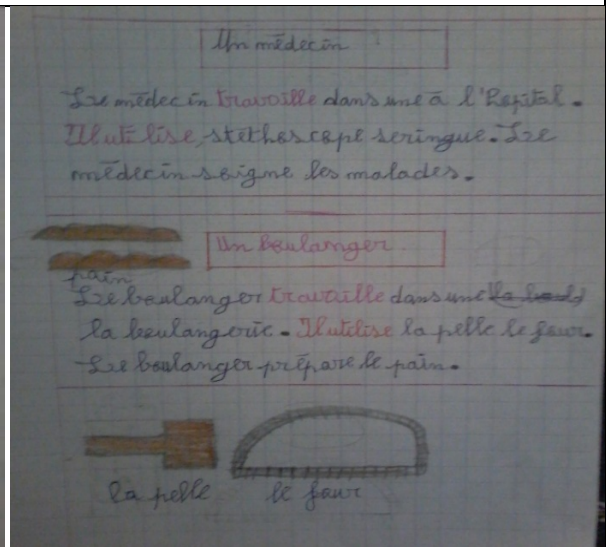 Un médecin
Le médecin travaille dans une à l'hopital.
Il utilise, stéthoscope seringue. Le
médecin soigne les malades.
Un boulanger
pain
Le boulanger travaille dans une
la boulangerie. Il utilise la pelle le four.
Le boulanger prépare le pain.
la pelle
le four